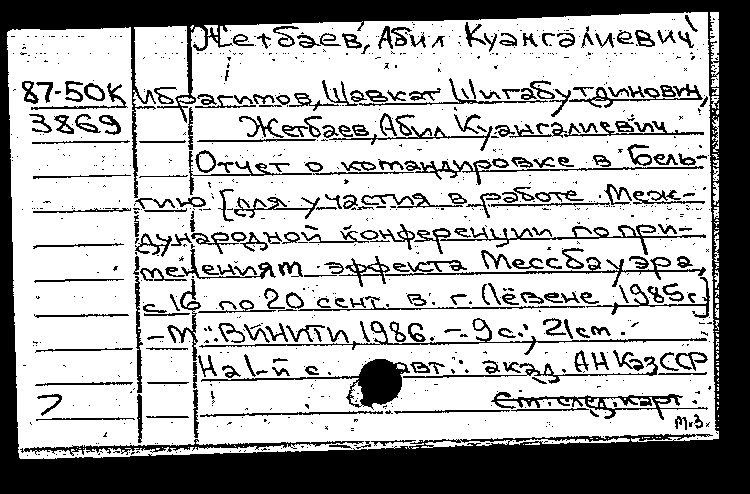 Жетбаев, Абил Куангалиевич
87-50К Ибрагимов, Шавкат Шигабутдинович,
3869 Жетбаев, Абил Куангалиевич.
Отчет о командировке в Бель-
гию [для участия в работе Меж-
дународной конференции по при-
менениям эффекта Мессбауэра,
с 16 по 20 сент. в г. Лёвене, 1985г.]
-М.: ВИНИТИ, 1986. - 9 с.; 21см.
На 1-й с. авт.: акад. АН КазССР
См. след. карт.
М.З.